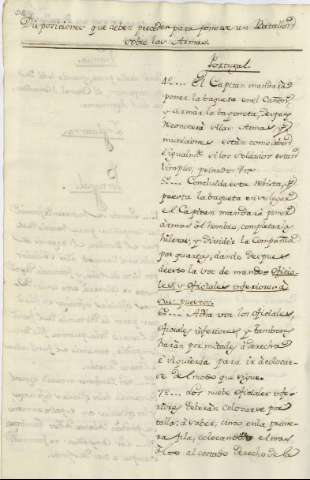 Disposiciones que deben preceder para formar un Batallon
sobre las Armas.
Portugal
4º.... El Capitan mandará
poner la baqueta en el Cañon,
y armar la bayoneta, despues
reconocerá si las Armas, y
municiones estan como deben
è igualmte si los soldados estan
limpios, peinados
5º.... Concluida esta rebista, y
puesta la baqueta en su lugar
el Capitan mandará poner
àrmas al hombro, completará
hileras, y dividirá la Compañia
por quartas, dando despues
de esto la voz de mando Oficia-
les, y Oficiales inferiores à
sus puestos.
6º.... A esta voz los oficiales,
oficiales inferiores, y tambores
harán por mitades à derecha
è izquierda para ir à colocar-
se del modo que sigue.
7º.... Los nueve oficiales infe-
riores deberán colocarse por
talla; à saber, cinco en la prime-
ra fila, colocando el mas
alto al costado derecho de la